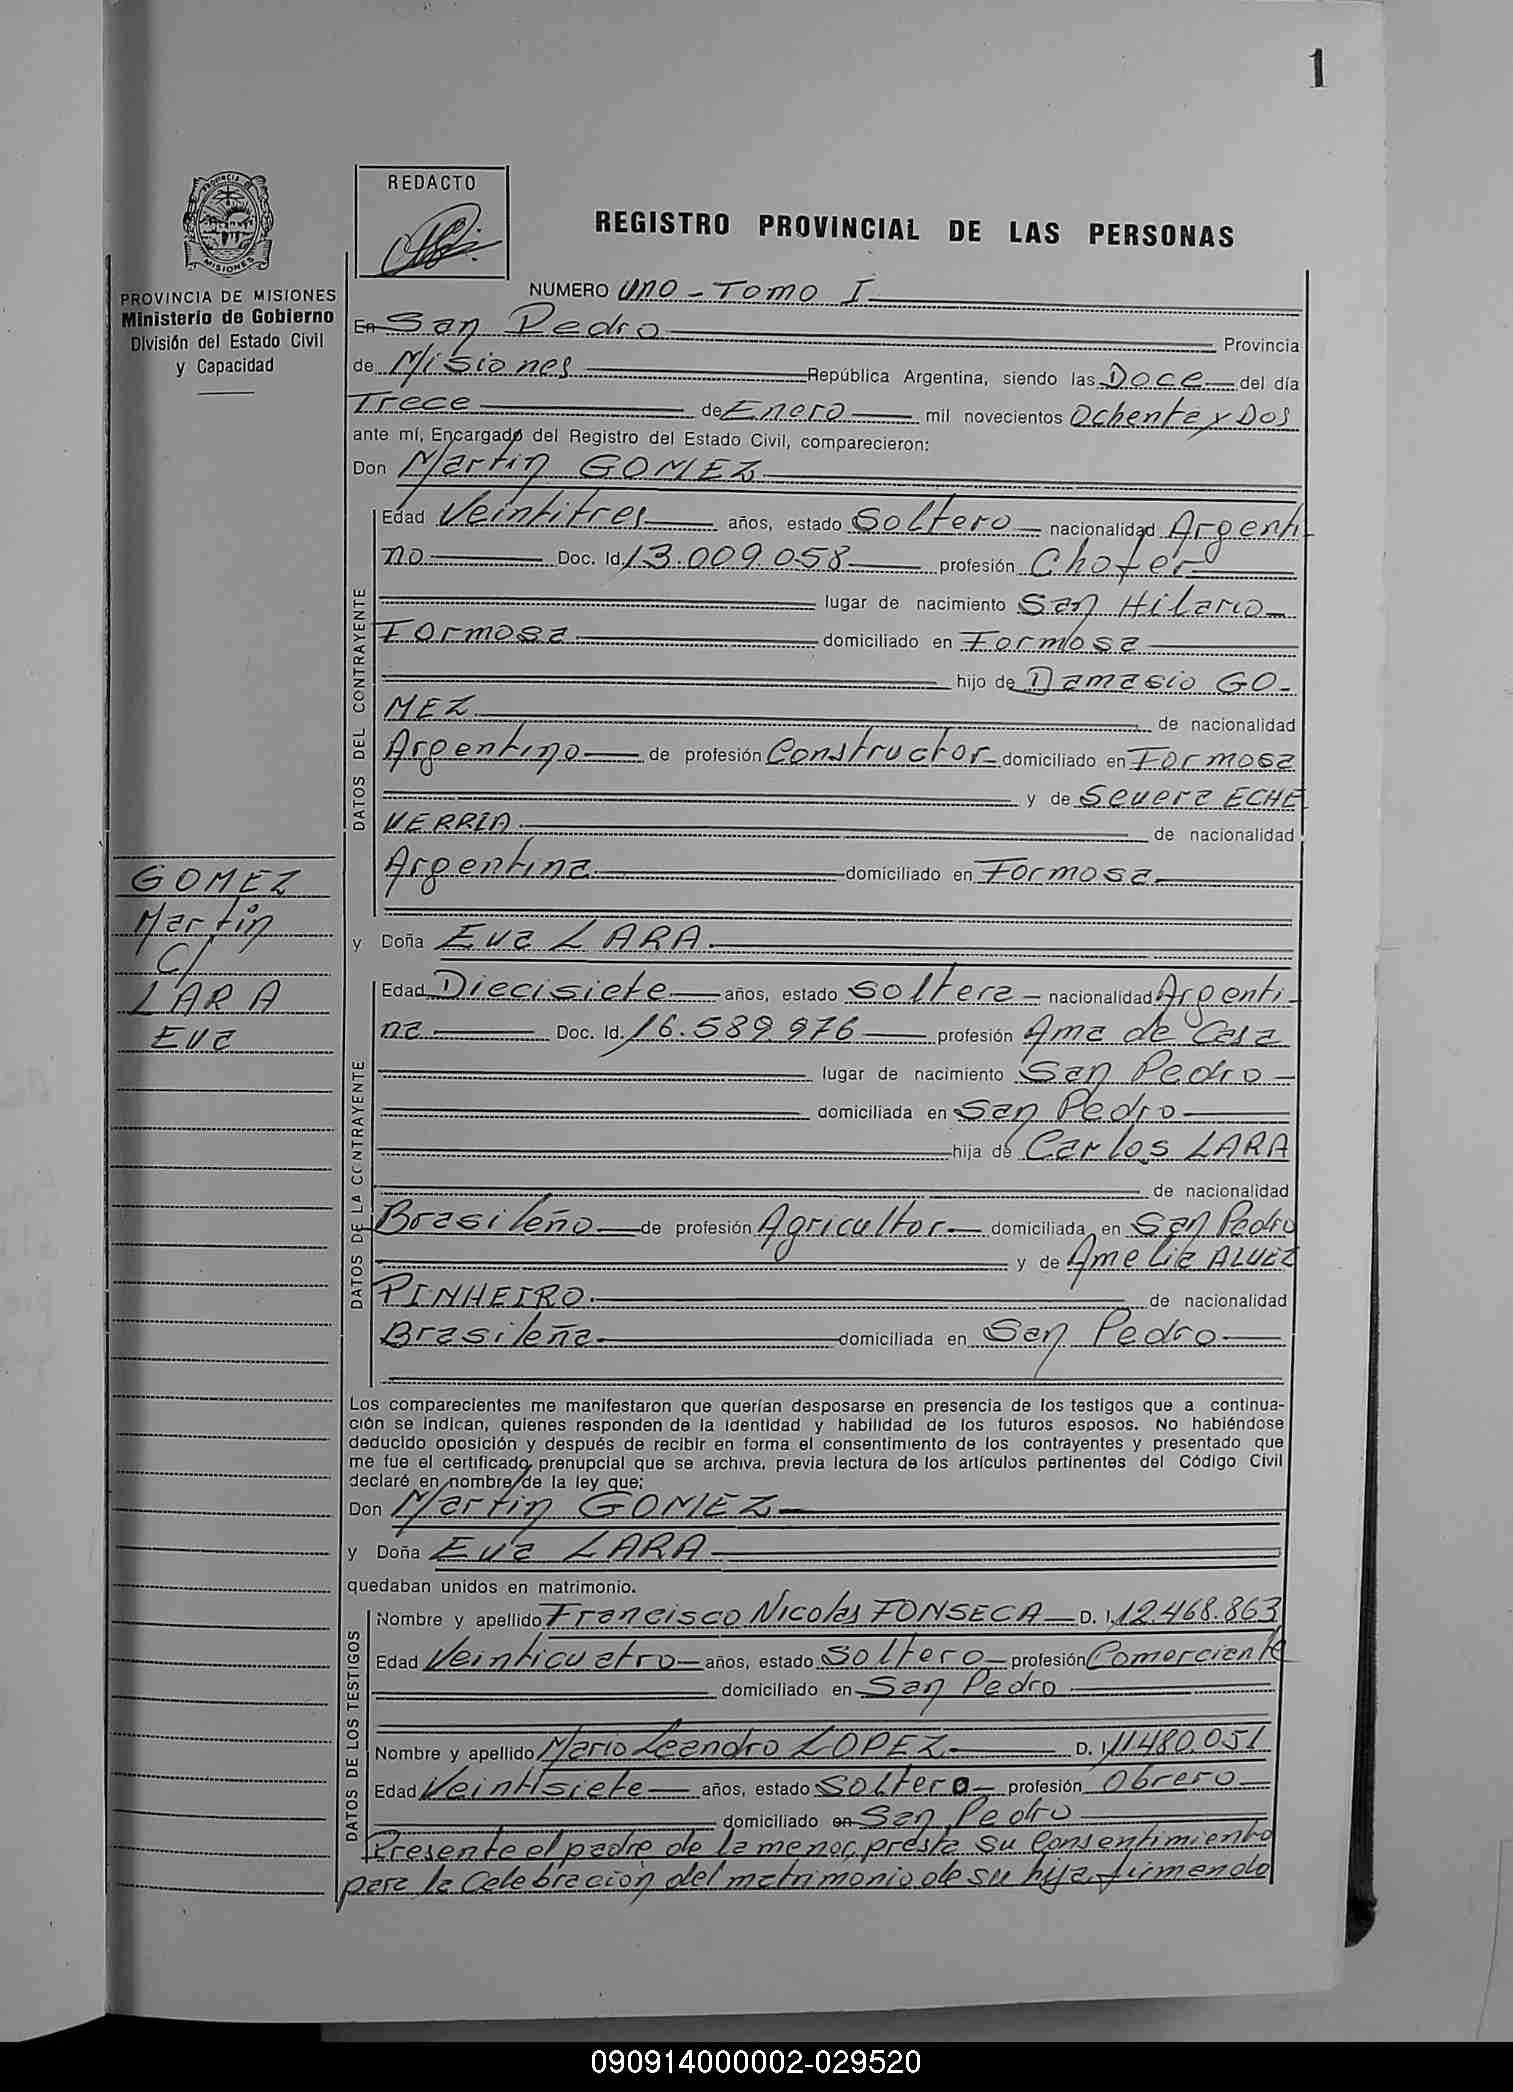 1
PROVINCIA DE
MISIONES
PROVINCIA DE MISIONES
Ministerio de Gobierno
División del Estado Civil
y Capacidad
REDACTO
REGISTRO PROVINCIAL DE LAS PERSONAS
NUMERO uno - Tomo I
En San Pedro Provincia
de Misiones República Argentina, siendo las Doce del día
Trece de Enero mil novecientos Ochenta y Dos
ante mí, Encargado del Registro del Estado Civil, comparecieron:
Don Martin GOMEZ
DATOS DEL CONTRAYENTE
Edad Veintitres años, estado Soltero nacionalidad Argenti-
no Doc. Id. 13.009.058 profesión Chofer
lugar de nacimiento San Hilario
Formosa domiciliado en Formosa
hijo de Damasio GO-
MEZ de nacionalidad
Argentino de profesión Constructor domiciliado en Formosa
y de Severa ECHE
VERRIA. de nacionalidad
Argentina domiciliado en Formosa
GOMEZ
Martin
C/
LARA
Eva
y Doña Eva LARA.
DATOS DE LA CONTRAYENTE
Edad Diecisiete años, estado Soltera nacionalidad Argenti-
na Doc. Id. 16.589.976 profesión Ama de Casa
lugar de nacimiento San Pedro
domiciliada en San Pedro
hija de Carlos LARA
de nacionalidad
Brasileño de profesión Agricultor domiciliada en San Pedro
y de Amelia ALVEZ
PINHEIRO. de nacionalidad
Brasileña domiciliada en San Pedro
Los comparecientes me manifestaron que querían desposarse en presencia de los testigos que a continua-
ción se indican, quienes responden de la identidad y habilidad de los futuros esposos. No habiéndose
deducido oposición y después de recibir en forma el consentimiento de los contrayentes y presentado que
me fue el certificado prenupcial que se archiva, previa lectura de los artículos pertinentes del Código Civil
declaré en nombre de la ley que:
Don Martin GOMEZ
y Doña Eva LARA
quedaban unidos en matrimonio.
DATOS DE LOS TESTIGOS
Nombre y apellido Francisco Nicolas FONSECA D. I. 12.468.863
Edad Veinticuatro años, estado Soltero profesión Comerciante
domiciliado en San Pedro
Nombre y apellido Mario Leandro LOPEZ D. I. 11.480.051
Edad Veintisiete años, estado Soltero profesión Obrero
domiciliado en San Pedro
Presente el padre de la menor, presta su Consentimiento
para la Celebración del matrimonio de su hija, firmando
090914000002-029520